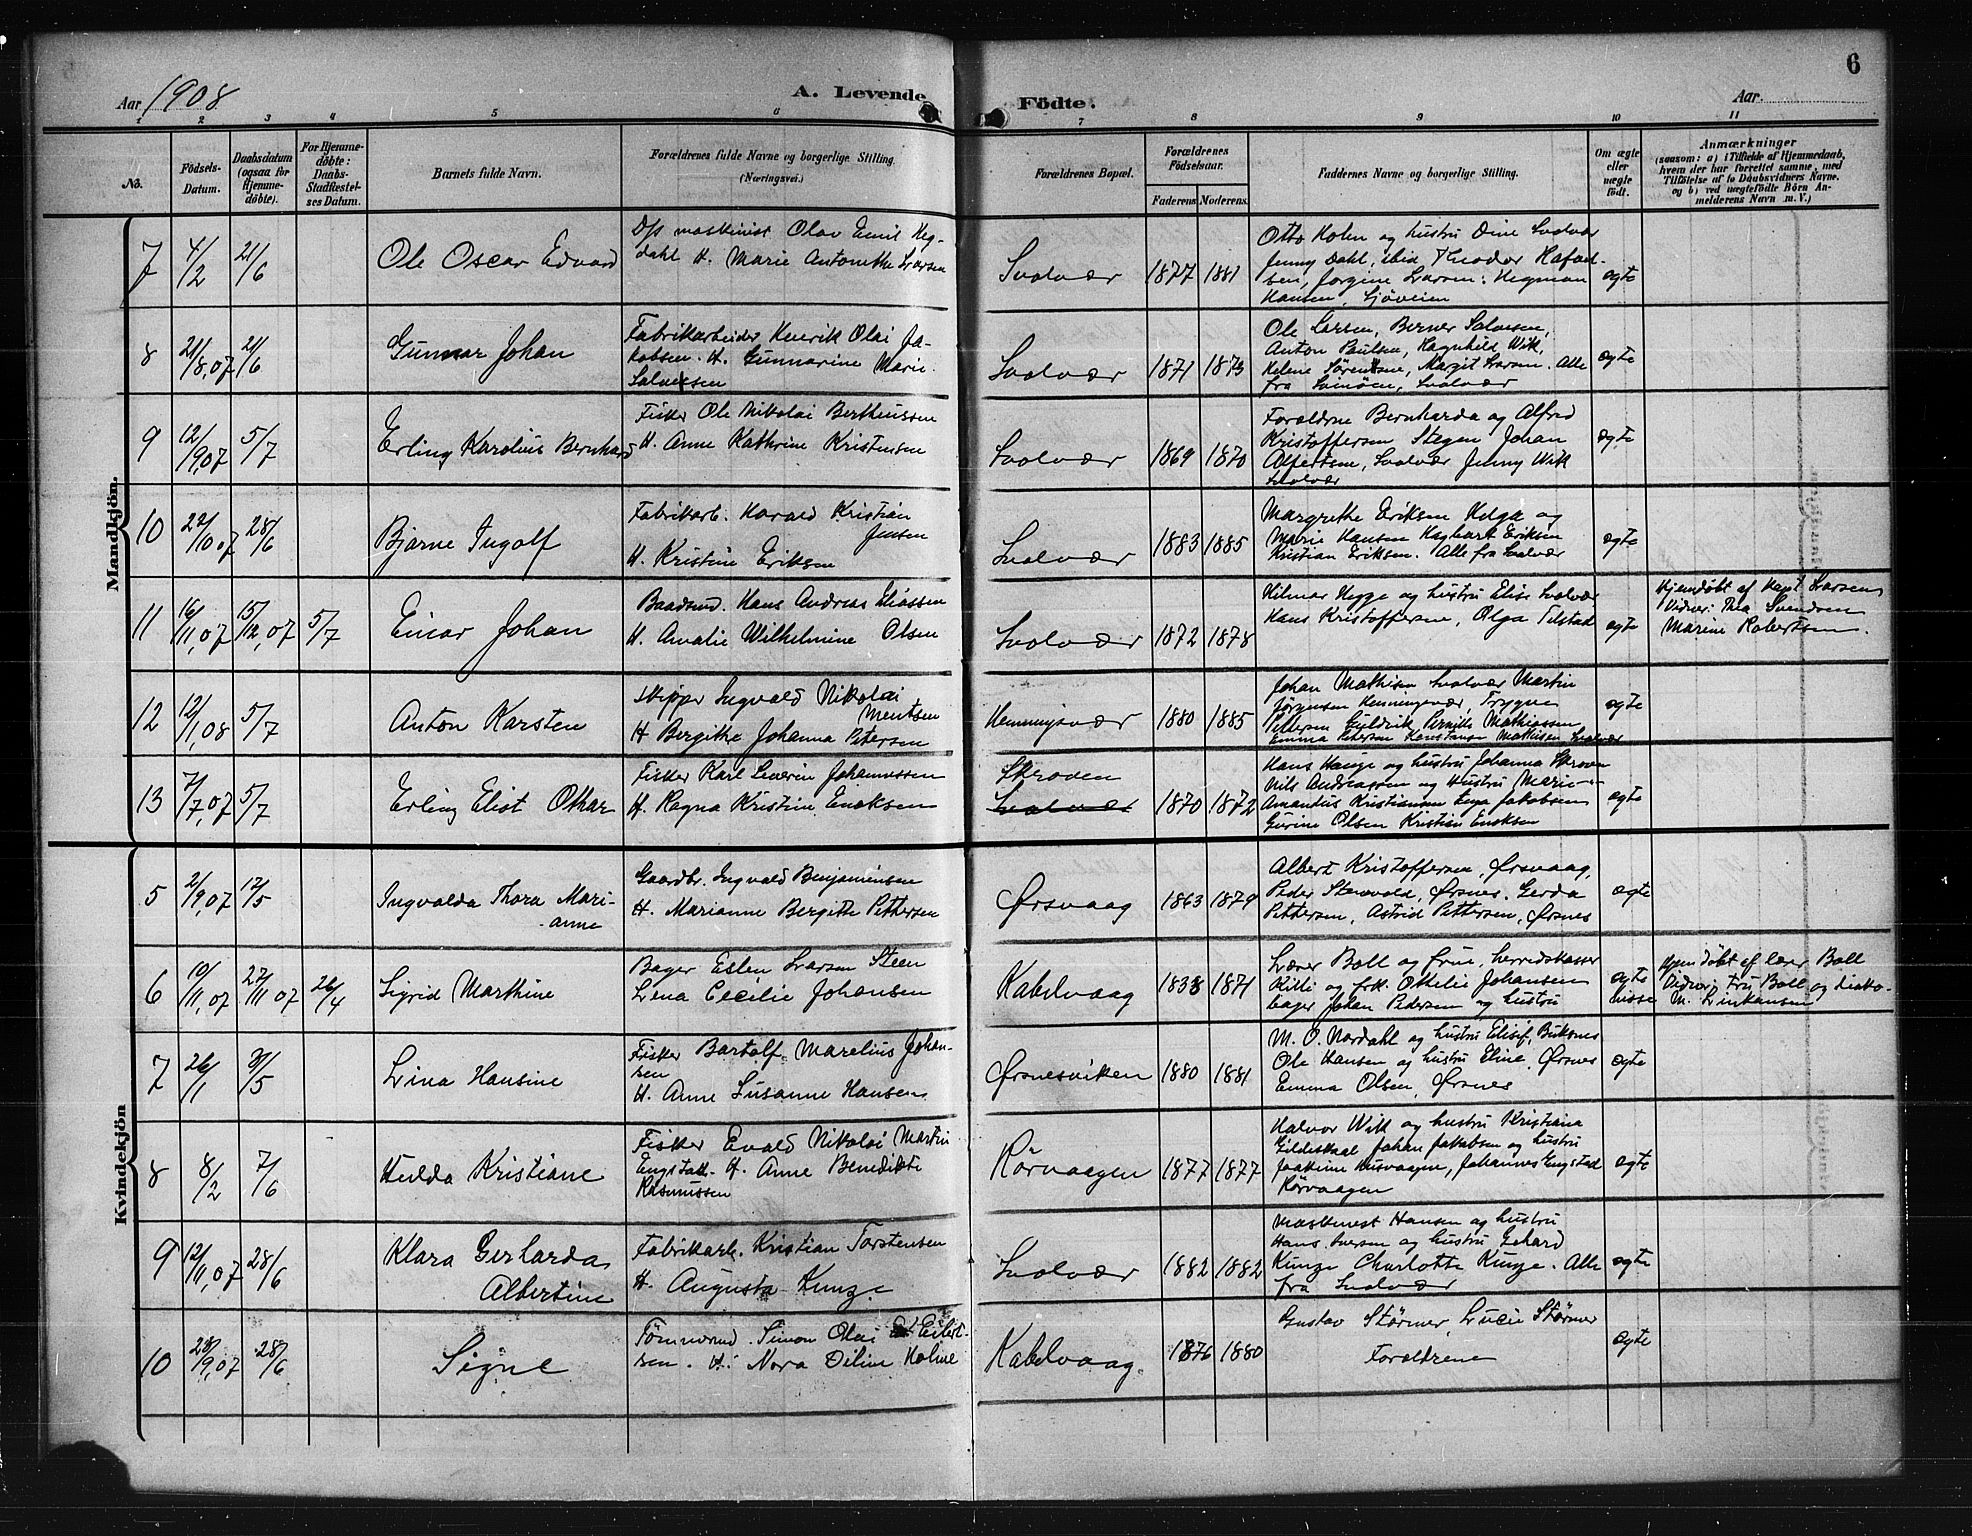 6
Aar 1908
A. Levende Födte.
Aar
1 2 3 4 5 6 7 8 9 10 11
No.
Födsels-Datum.
Daabsdatum (ogsaa for Hjemme-döbte).
For Hjemme-döbte: Daabs-Stadfæstel-ses Datum.
Barnets fulde Navn.
Forældrenes fulde Navne og borgerlige Stilling. (Næringsvei.)
Forældrenes Bopæl.
Forældrenes Födselsaar.
Faderens Moderens.
Faddernes Navne og borgerlige Stilling.
Om ægte eller uægte födt.
Anmærkninger
(saasom: a) i Tilfælde af Hjemmedaab, hvem der har forrettet samme, med Tilföielse af to Daabsvidners Navne, og b) ved uægtefödte Börn An-melderens Navn m. V.)
Mandkjön.
7 4/2 21/6 Ole Oscar Edvard
D/s maskinist Olav Emil Heg-
dahl H. Marie Antonethe Larsen
Svolvær 1877 1881
Otto Holm og hustru Dine Svolvær
Jenny Dahl, ibid Theodor
Jørgine Larsen
Hansen, Sjöveien
ægte
8 21/8,07 21/6 Gunnar Johan
Fabrikarbeider Henrik Olai Ja-
kobsen. H. Gunnarine Marie
Salvesen
Svolvær 1871 1873
Ole Larsen, Berner Salvesen,
Anton Paulsen, Hagnhild Wik,
Helene Sörensen, Margit Larsen. Alle
fra Svinöen, Svolvær
ægte
9 12/9,07 5/7 Erling Karolius Bernhard
Fisker Ole Nikolai Bertheussen
H. Anne Kathrine Kristensen
Svolvær 1869 1870
Forældrne Bernharda og Alfred
Kristoffersen Stegen Johan
Albertsen, Svolvær Jenny Wik
Svolvær
ægte
10 22/10 07 28/6 Bjarne Ingolf
Fabrikarb. Harald Kristian
Jensen
H. Kristine Eriksen
Svolvær 1883 1885
Margrethe Eriksen Helga og
Marie Hansen Hagbart Eriksen
Kristian Eriksen. Alle fra Svolvær
ægte
11 16/11,07 15/12,07 5/7 Einar Johan
Baadsmd. Hans Andreas Eliassen
H. Amalie Wilhelmine Olsen
Svolvær 1872 1878
Hilmar Hegge og hustru Elise Svolvær
Hans Kristoffersen, Olga Tilstad
ægte
Hjemdøbt af Kapt Larsen
Vidner: Thea Svendsen
Marine Robertsen.
12 12/1,08 5/7 Anton Karsten
Skipper Ingvald Nikolai
Mentsen
H Bergithe Johanna Petersen
Henningsvær 1880 1885
Johan Mathisen Svolvær Martin
Jørgensen Henningsvær, Trygve
Pettersen Pernille Mathiassen
Emma Petersen Konstanse Mathisen Svolvær
ægte
13 7/7,07 5/7 Erling Eliot Othar
Fisker Karl Severin Johannessen
H. Ragna Kristine Enoksen
Skroven
Svolvær 1870 1872
Hans Hauge og hustru Johanna Skroven
Nils Andreassen og Hustru Marie
Amandus Kristiansen Lena Jakobsen
Gurine Olsen Kristian Enoksen
ægte
Kvindekjön
5 2/9,07 17/5 Ingvalda Thora Mari-
anne
Gaardbr. Ingvald Benjaminsen
H. Marianne Bergitte Pettersen
Ørsvaag 1863 1879
Albert Kristoffersen, Ørsvaag,
Peder Stenvold, Ørsnes. Gerda
Pettersen, Astrid Pettersen, Ørsnes
ægte
6 10/11,07 27/11 07 26/4 Sigrid Marthine
Bager Esten Larsen Steen
Lina Cecilie Johansen
Kabelvaag 1838 1871
Lærer Boll og frue, herredskasser
Killi og frk. Othelie Johansen
bager Johan Pedersen og hustru
ægte
Hjemdøbt af lærer Boll
Vidner: Fru Boll og
7 26/1 31/5 Lina Hansine
Fisker Bartolf Marelius Johan-
sen
H. Anne Susanne Hansen
Ørsnesviken 1880 1881
M. O. Nordahl og hustru Elisif, Buksnes
Ole Hansen og hustru Eline, Ørsnes
Emma Olsen, Ørsnes
ægte
8 8/2 7/6 Hulda Kristiane
Fisker Evald Nikolai Martin
Engstad. H. Anne Benedikte
Rasmussen
Rørvaagen 1877 1877
Halvor Wik og hustru Kristiana
Gildeskaal Johan Jakobsen og hustru
Joakime Risvaagen, Johannes Engstad
Rørvaagen
ægte
9 12/11,07 28/6 Klara Gerharda
Albertine
Fabrikarb. Kristian Torstensen
H. Augusta Kunze
Svolvær 1882 1882
Maskinest Hansen og hustru
Hans Iversen og hustru Gerhard
Kunze Charlotte Kunze. Alle
fra Svolvær
ægte
10 28/9,07 28/6 Signe
Tömmermd. Simon Olai Eilert-
sen. H. Nora Dilin Holme
Kabelvaag 1876 1880
Gustav Störmer, Lucie Störmer
Forældrene
ægte